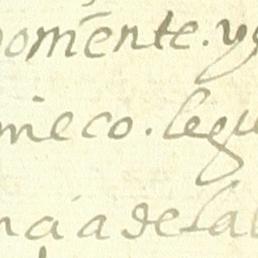 pomēnte. yg
meco. legu
nci a de la l